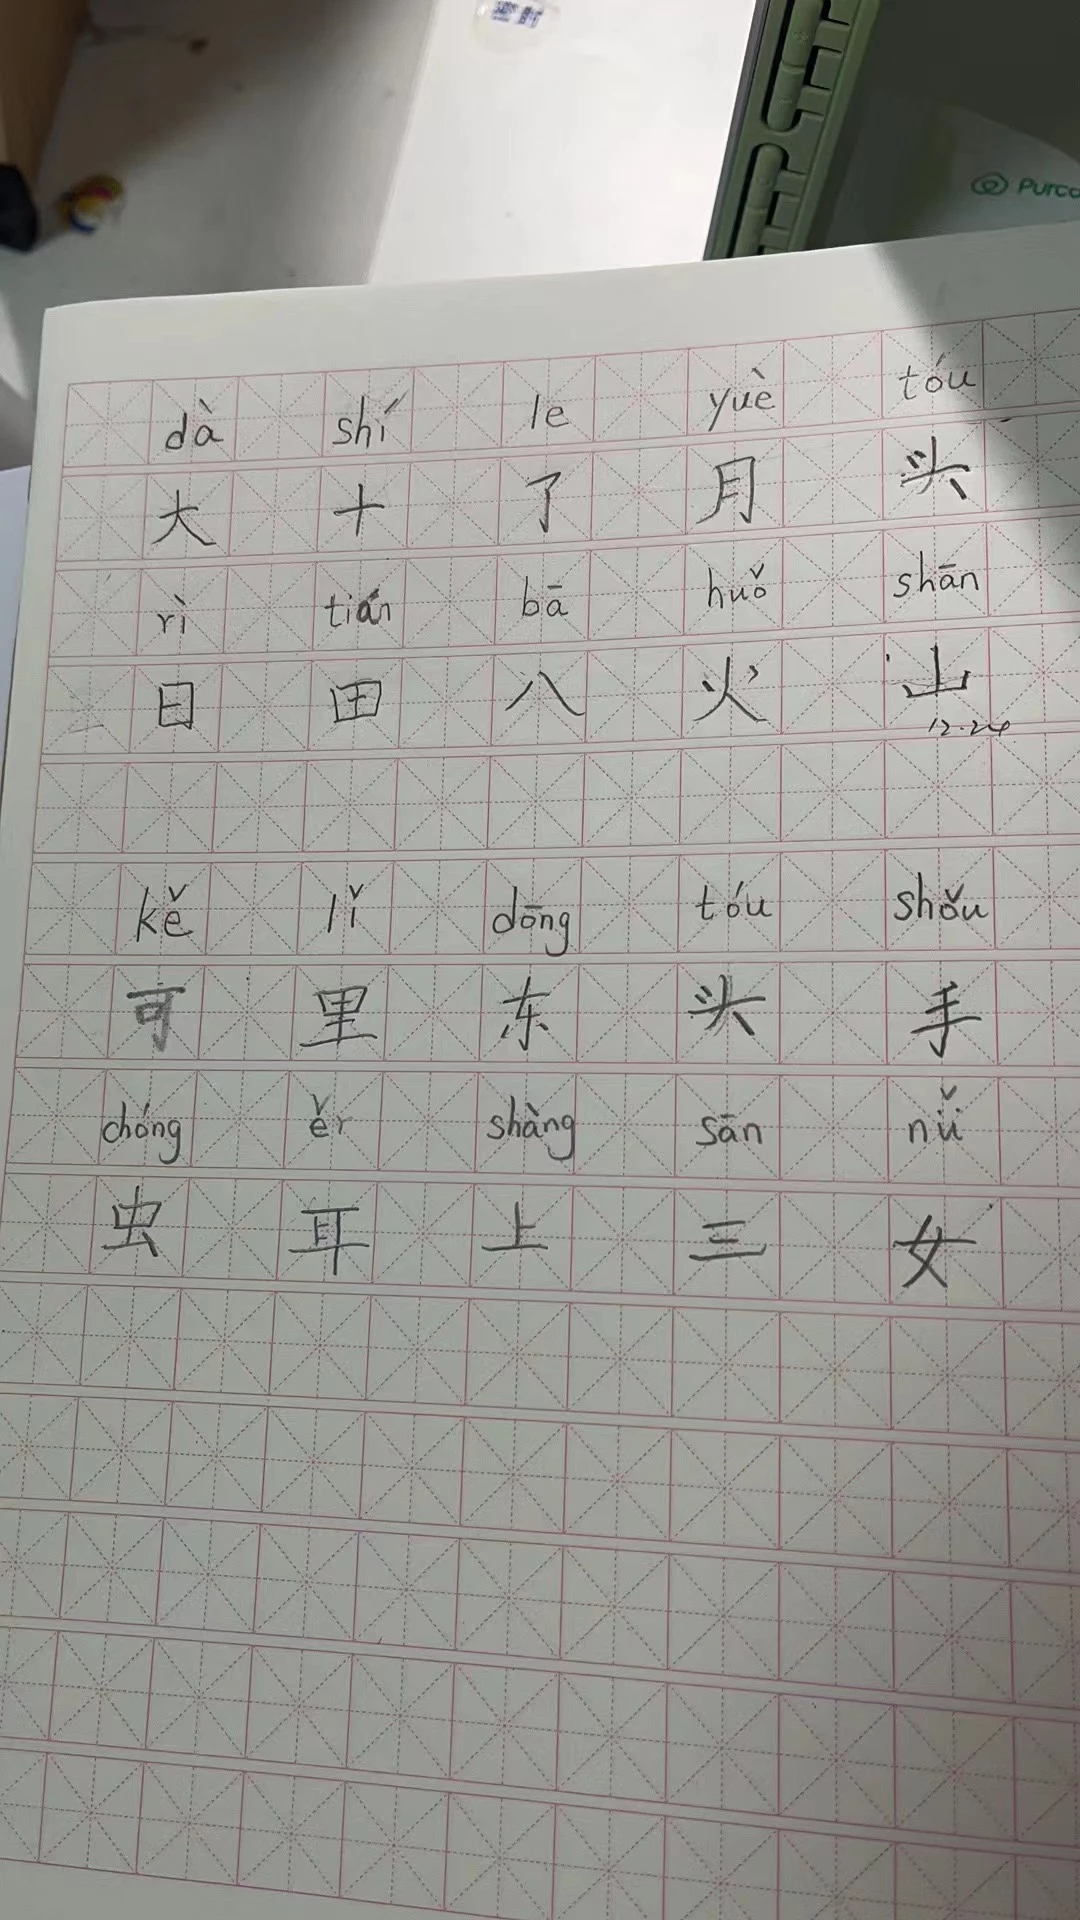 密封
Purco
dà shí le yuè tóu
大 十 了 月 头
rì tián bā huǒ shān
日 田 八 火 山
12.24
kě lǐ dōng tóu shǒu
可 里 东 头 手
chóng ěr shàng sān nǚ
虫 耳 上 三 女